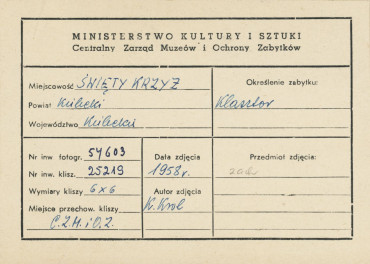 MINISTERSTWO KULTURY I SZTUKI
Centralny Zarząd Muzeów i Ochrony Zabytków
Miejscowość ŚWIĘTY KRZYŻ
Powiat Kielecki
Województwo Kieleckie
Określenie zabytku:
Klasztor
Nr inw fotogr. 54603
Nr inw. klisz. 25219
Wymiary kliszy 6x6
Miejsce przechow. kliszy
C.Z.M.i O.Z.
Data zdjęcia
1958 r.
Autor zdjęcia
K. Krol
Przedmiot zdjęcia: